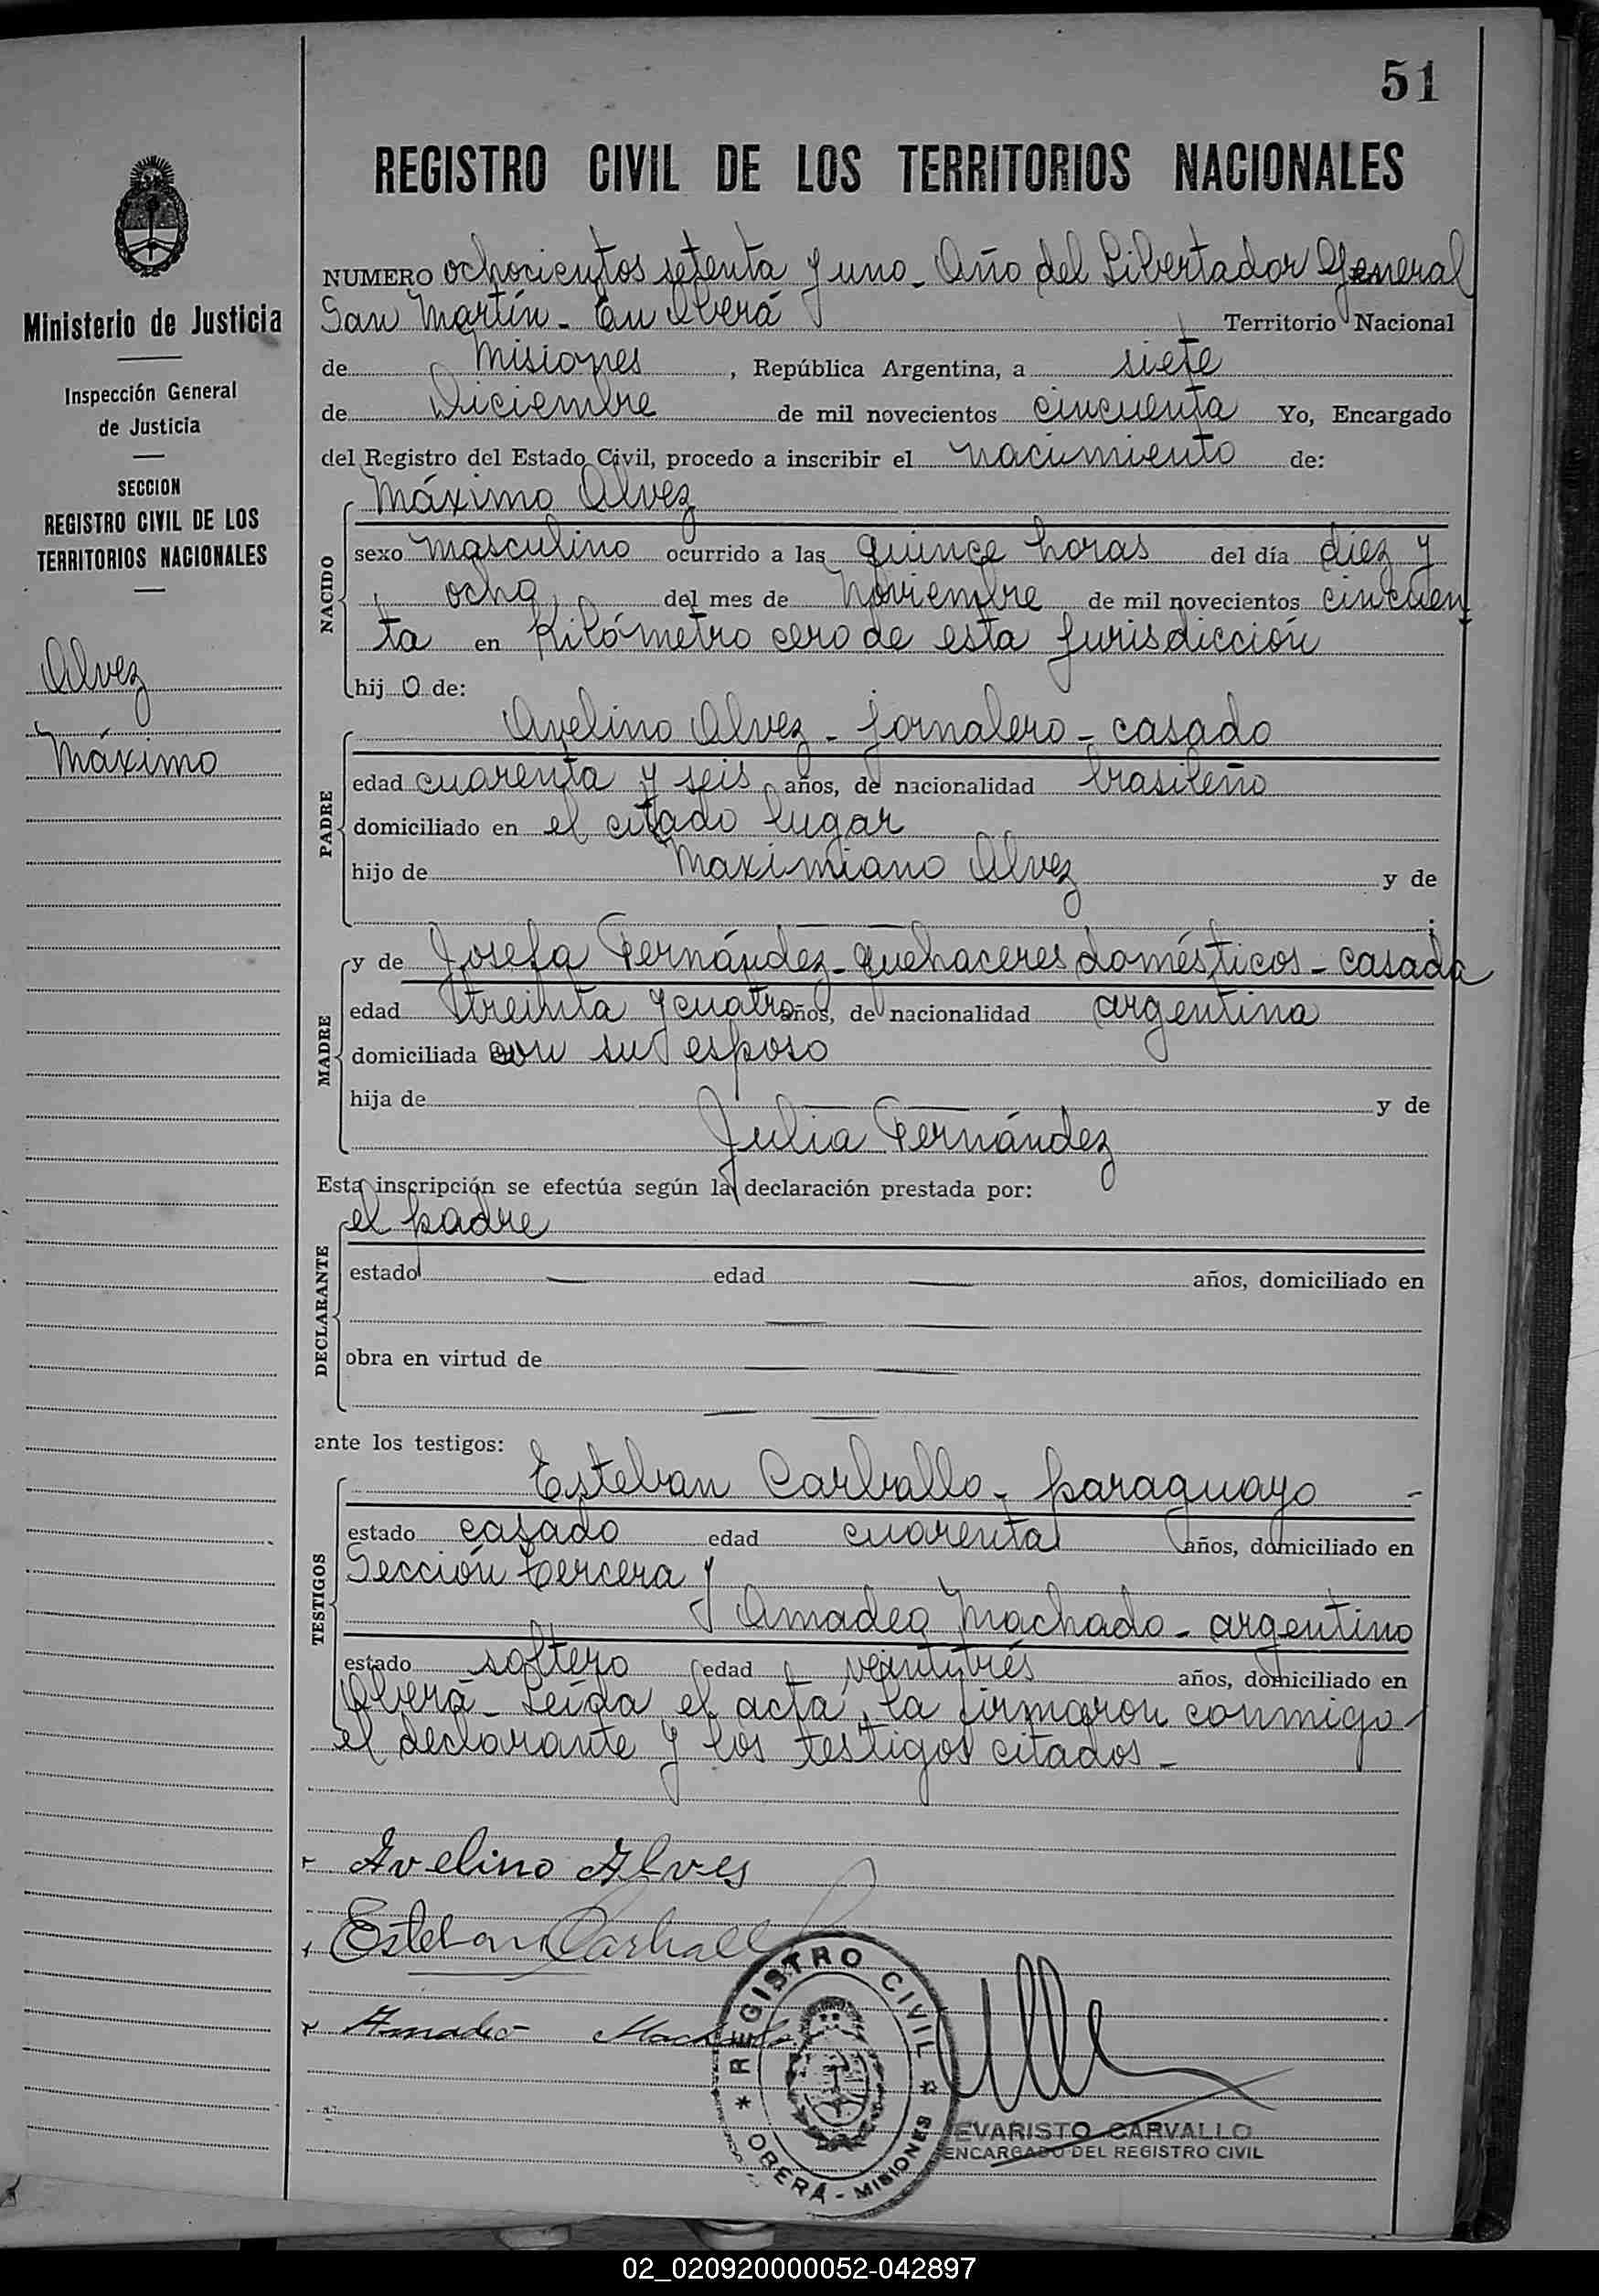 51
REGISTRO CIVIL DE LOS TERRITORIOS NACIONALES
Ministerio de Justicia
Inspección General
de Justicia
SECCION
REGISTRO CIVIL DE LOS
TERRITORIOS NACIONALES
Alvez
Máximo
NUMERO ochocientos setenta y uno - Año del Libertador General
San Martín - En Oberá Territorio Nacional
de Misiones, República Argentina, a siete
de Diciembre de mil novecientos cincuenta Yo, Encargado
del Registro del Estado Civil, procedo a inscribir el nacimiento de:
NACIDO
Máximo Alvez
sexo masculino ocurrido a las quince horas del día diez y
ocho del mes de Noviembre de mil novecientos cincuen
ta en Kilómetro cero de esta jurisdicción
hij o de:
PADRE
Avelino Alvez - jornalero - casado
edad cuarenta y seis años, de nacionalidad brasileño
domiciliado en el citado lugar
hijo de Maximiano Alvez y de
MADRE
y de Josefa Fernández - quehaceres domésticos - casada
edad treinta y cuatro años, de nacionalidad argentina
domiciliada con su esposo
hija de y de
Julia Fernández
Esta inscripción se efectúa según la declaración prestada por:
DECLARANTE
el padre
estado edad años, domiciliado en
obra en virtud de
ante los testigos:
TESTIGOS
Esteban Carballo - paraguayo -
estado casado edad cuarenta años, domiciliado en
Sección tercera y
Amadeo Machado - argentino
estado soltero edad veintitrés años, domiciliado en
Oberá - Leída el acta, la firmaron conmigo
el declarante y los testigos citados -
Avelino Alves
Esteban Carball
Amadeo Machado
REGISTRO CIVIL
OBERÁ - MISIONES
EVARISTO CARVALLO
ENCARGADO DEL REGISTRO CIVIL
02_020920000052-042897